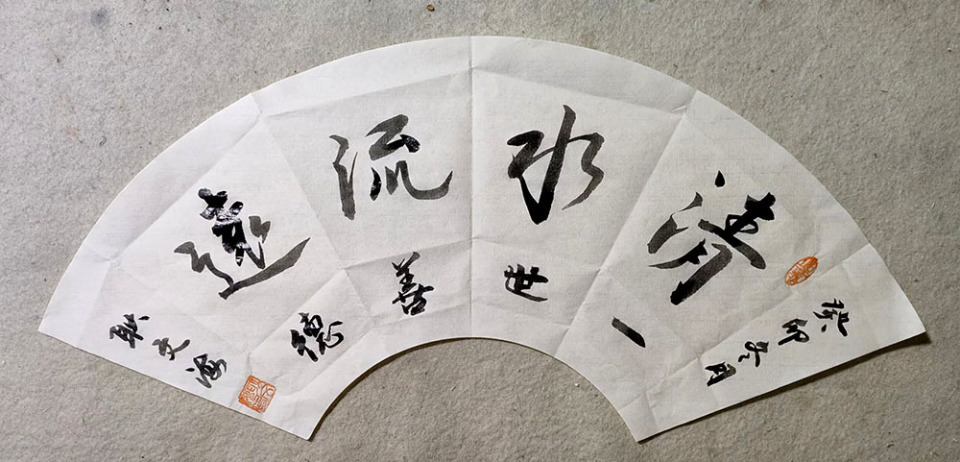 癸卯冬月
清水流遠
一世善德
耿文海